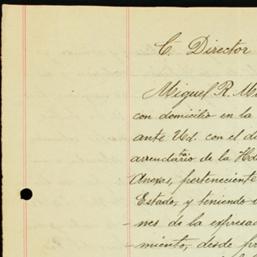 C. Director
Miguel R. M
con domicilio en la
ante Ud. con el d
arrendatario de la Hda
Anexas, perteneciente
Estado, y teniendo
nes de la expresa
miento, desde pr